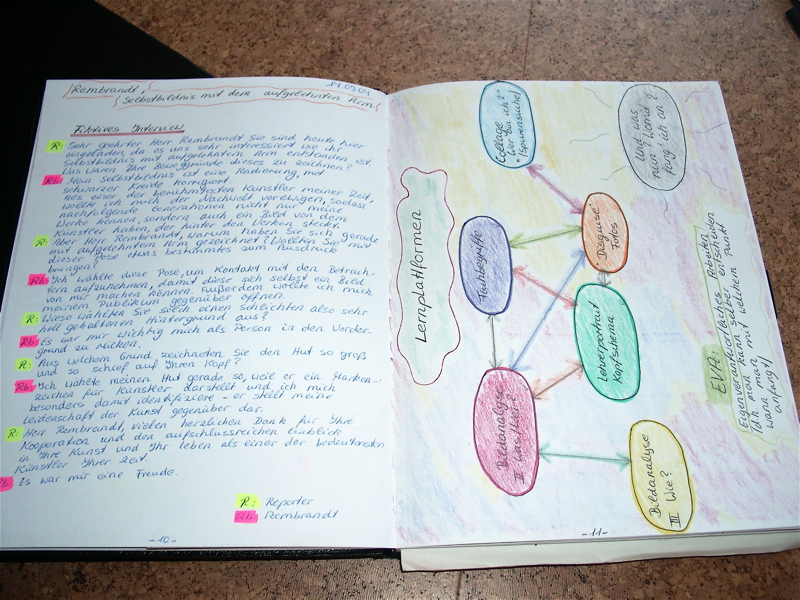 14.09.04
Rembrandt,
Selbstbildnis mit dem aufgelehnten Arm
Fiktives Interview
R: Sehr geehrter Herr Rembrandt Sie sind heute hier
eingeladen, da es uns sehr interessiert wie ihr
selbstbildnis mit aufgelehntem Arm entstanden ist.
Was waren Ihr Beweggründe dieses zu zeichnen?
Rb: Mein Selbstbildnis ist eine Radierung, mit
schwarzer Kreide korrigiert.
Als einer der berühmtesten Künstler meiner Zeit,
wollte ich mich der Nachwelt verewigen, sodass
nachfolgende Generationen nicht nur meine
Werke kennen, sondern auch ein Bild von dem
Künstler haben, der hinter den Werken steckt.
R: Aber Herr Rembrandt, warum haben Sie sich gerade
mit aufgelehntem Arm gezeichnet? Wollten Sie mit
dieser Pose etwas bestimmtes zum Ausdruck
bringen?
Rb: Ich wählte diese Pose, um Kontakt mit den Betrach-
tern aufzunehmen, damit diese sich selbst ein Bild
von mir machen können. Außerdem wollte ich mich
meinem Publikum gegenüber öffnen.
R: Wieso wählten Sie solch einen schlichten also sehr
hell gehaltenen Hintergrund aus?
Rb: Es war mir wichtig mich als Person in den Vorder-
grund zu rücken.
R: Aus welchem Grund zeichneten Sie den Hut so groß
und so schief auf Ihren Kopf?
Rb: Ich wählte meinen Hut gerade so, weil er ein Marken-
zeichen für Künstler darstellt und ich mich
besonders damit identifiziere - er stellt meine
Leidenschaft der Kunst gegenüber dar.
R: Herr Rembrandt, vielen herzlichen Dank für Ihre
Kooperation und den aufschlussreichen Einblick
in Ihre Kunst und Ihr Leben als einer der bedeutensten
Künstler Ihrer Zeit.
Rb: Es war mir eine Freude.
R: Reporter
Rb: Rembrandt
-10-
Lernplattformen
Collage
"Wer bin ich?"
(Spurensuche)
Und was
nun? Womit
fang' ich an?
Fachbegriffe
"Disguise"
Fotos
Lehrerportrait
Kopfschema
Bildanalyse
Bildanalyse
III Wie?
EVA:
Eigenverantwortliches Arbeiten
(Ich/man kann selber entscheiden
wann man mit welchem Punkt
anfängt)
-11-